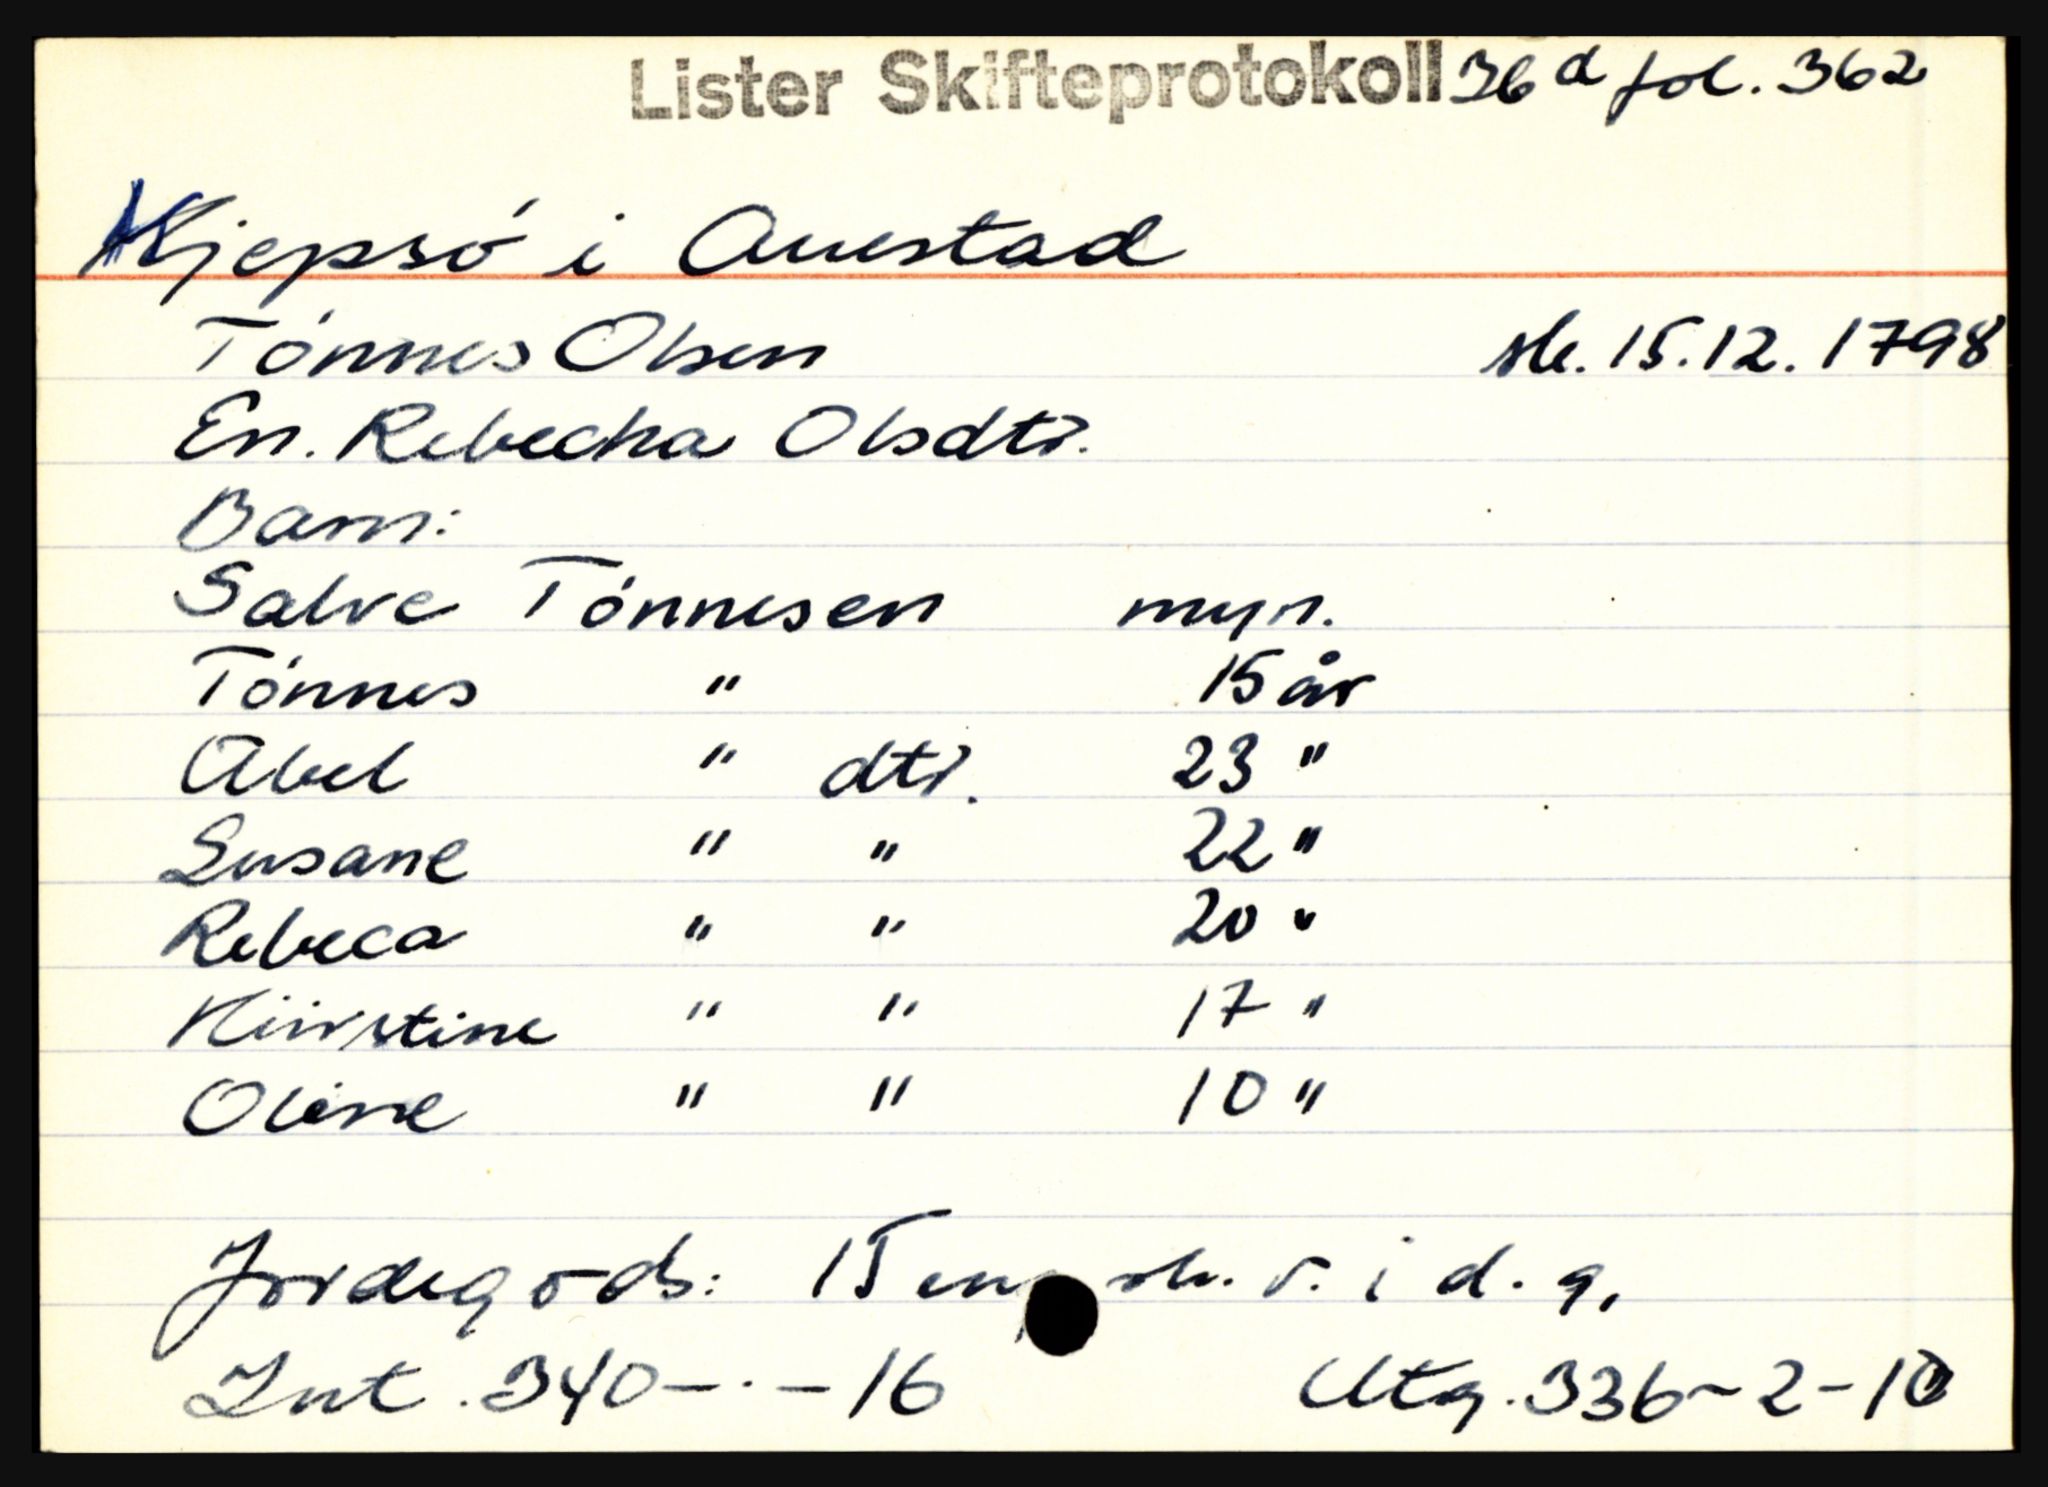 Lister Skifteprotokoll 36d fol. 362
Kjepsó i Austad
Tónnes Olsen sk. 15.12.1798
En. Rebecha Olsdtr.
Barn:
Salve Tónnesen myn.
Tónnes " 15 år
Abel " dtr. 23 "
Susane " " 22 "
Rebeca " " 20 "
Kiirstine " " 17 "
Oline " " 10 "
Jordegods: 15 eng sk. v. i d. g.
Int. 340-·-16 Utg. 336-2-10